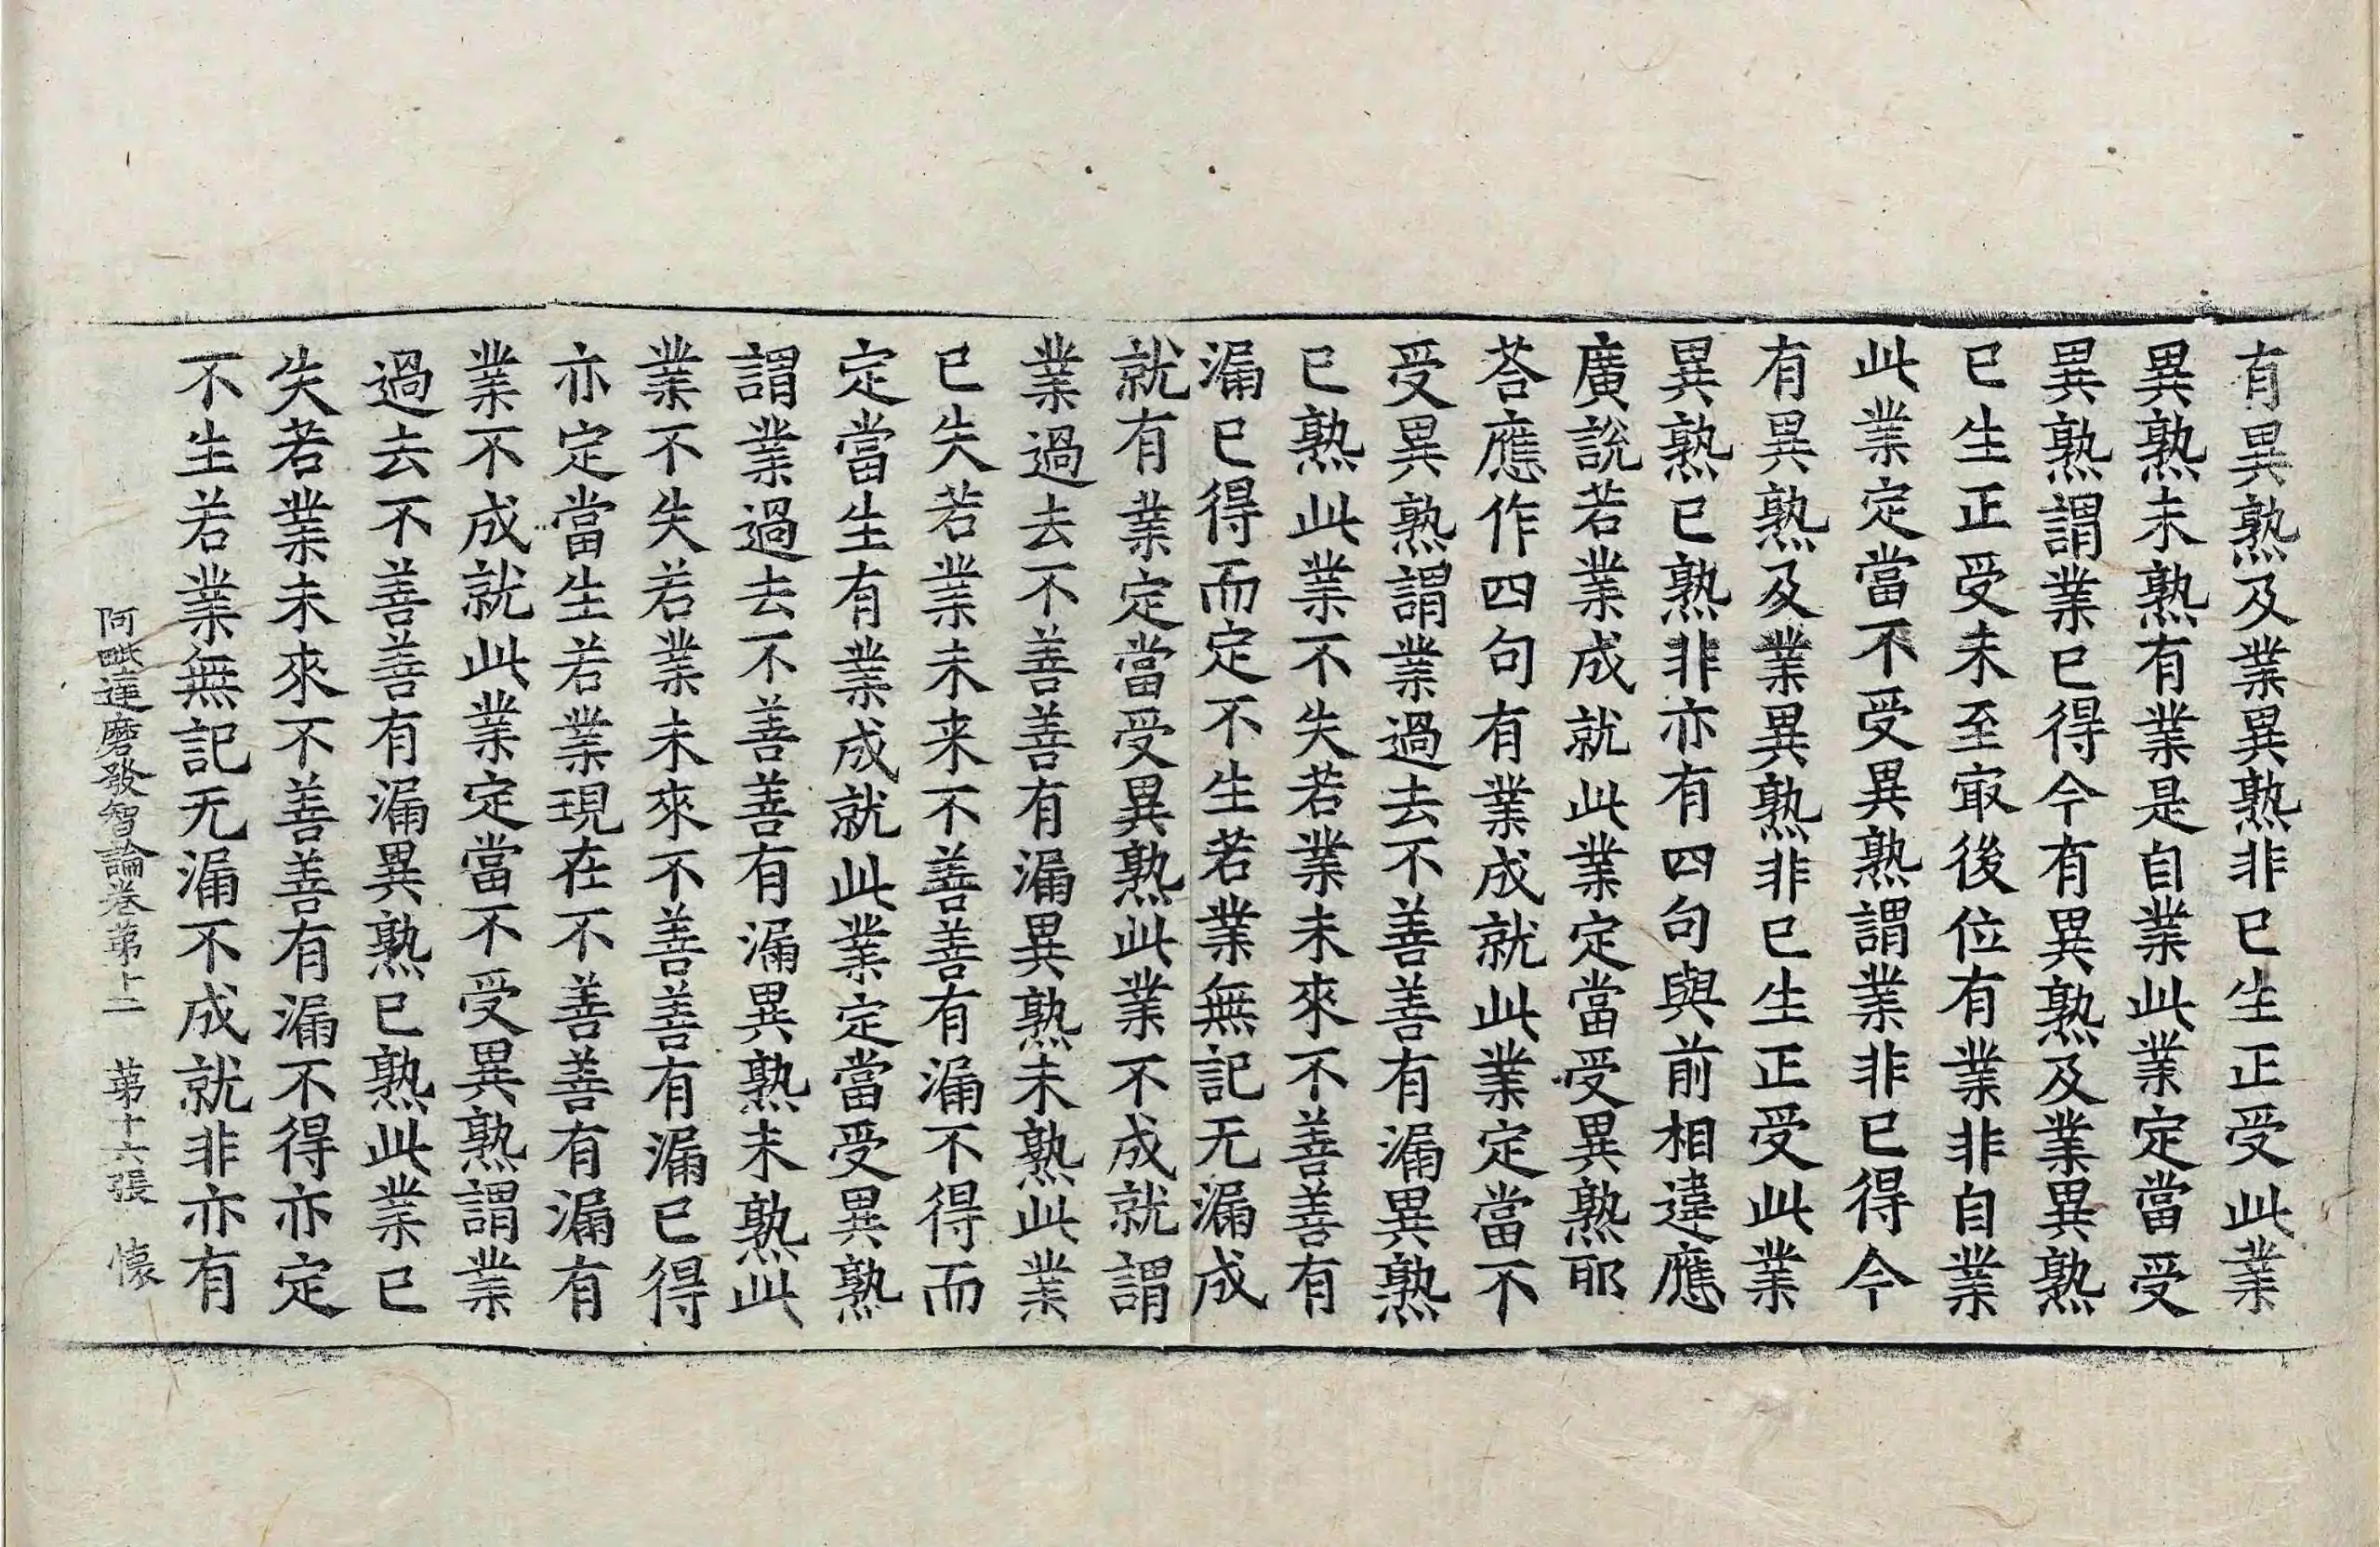 有異熟及業異熟非已生正受此業
異熟未熟有業是自業此業定當受
異熟謂業已得今有異熟及業異熟
已生正受未至㝡後位有業非自業
此業定當不受異熟謂業非已得今
有異熟及業異熟非已生正受此業
異熟已熟非亦有四句與前相違應
廣說若業成就此業定當受異熟耶
荅應作四句有業成就此業定當不
受異熟謂業過去不善善有漏異熟
已熟此業不失若業未來不善善有
漏已得而定不生若業無記无漏成
就有業定當受異熟此業不成就謂
業過去不善善有漏異熟未熟此業
已失若業未来不善善有漏不得而
定當生有業成就此業定當受異熟
謂業過去不善善有漏異熟未熟此
業不失若業未來不善善有漏已得
亦定當生若業現在不善善有漏有
業不成就此業定當不受異熟謂業
過去不善善有漏異熟已熟此業已
失若業未來不善善有漏不得亦定
不生若業無記无漏不成就非亦有
阿毗達磨發智論卷第十二 第十六張 懐